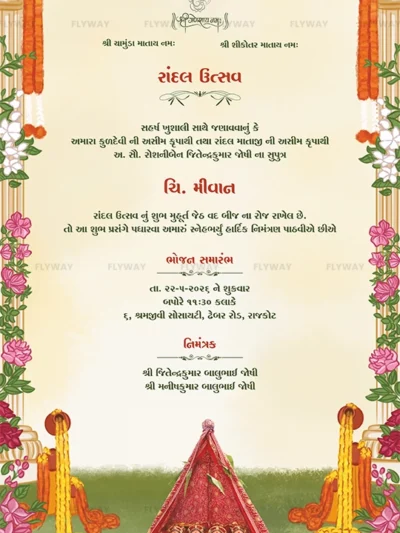 શ્રી ગણેશાય નમઃ
FLYWAY FLYWAY FLYWAY FLYWAY
શ્રી ચામુંડા માતાય નમઃ શ્રી શીકોતર માતાય નમઃ
રાંદલ ઉત્સવ
સહર્ષ ખુશાલી સાથે જણાવવાનું કે
અમારા કુળદેવી ની અસીમ કૃપાથી તથા રાંદલ માતાજી ની અસીમ કૃપાથી
અ. સૌ. રોશનીબેન જિતેન્દ્રકુમાર જોષી ના સુપુત્ર
ચિ. મીવાન
રાંદલ ઉત્સવ નું શુભ મુહૂર્ત જેઠ વદ બીજ ના રોજ રાખેલ છે.
તો આ શુભ પ્રસંગે પધારવા અમારું સ્નેહભર્યુ હાર્દિક નિમંત્રણ પાઠવીએ છીએ
ભોજન સમારંભ
FLYWAY FLYWAY FLYWAY FLYWAY
તા. ૨૨-૫-૨૦૨૬ ને શુક્રવાર
બપોરે ૧૧:૩૦ કલાકે
૬, શ્રમજીવી સોસાયટી, ઢેબર રોડ, રાજકોટ
નિમંત્રક
શ્રી જિતેન્દ્રકુમાર બાલુભાઈ જોષી
શ્રી મનીષકુમાર બાલુભાઈ જોષી
FLYWAY FLYWAY FLYWAY FLYWAY